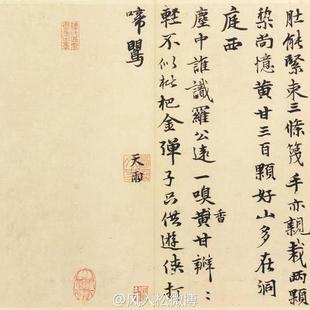 肚能緊束三條篾手亦親栽两顆
棃尚憶黄甘三百顆好山多在洞
庭西
塵中誰識羅公遠一嗅黄甘瓣〻
香
輕不似枇杷金彈子只供遊俠打
啼鸎
天雨
@风入松微博